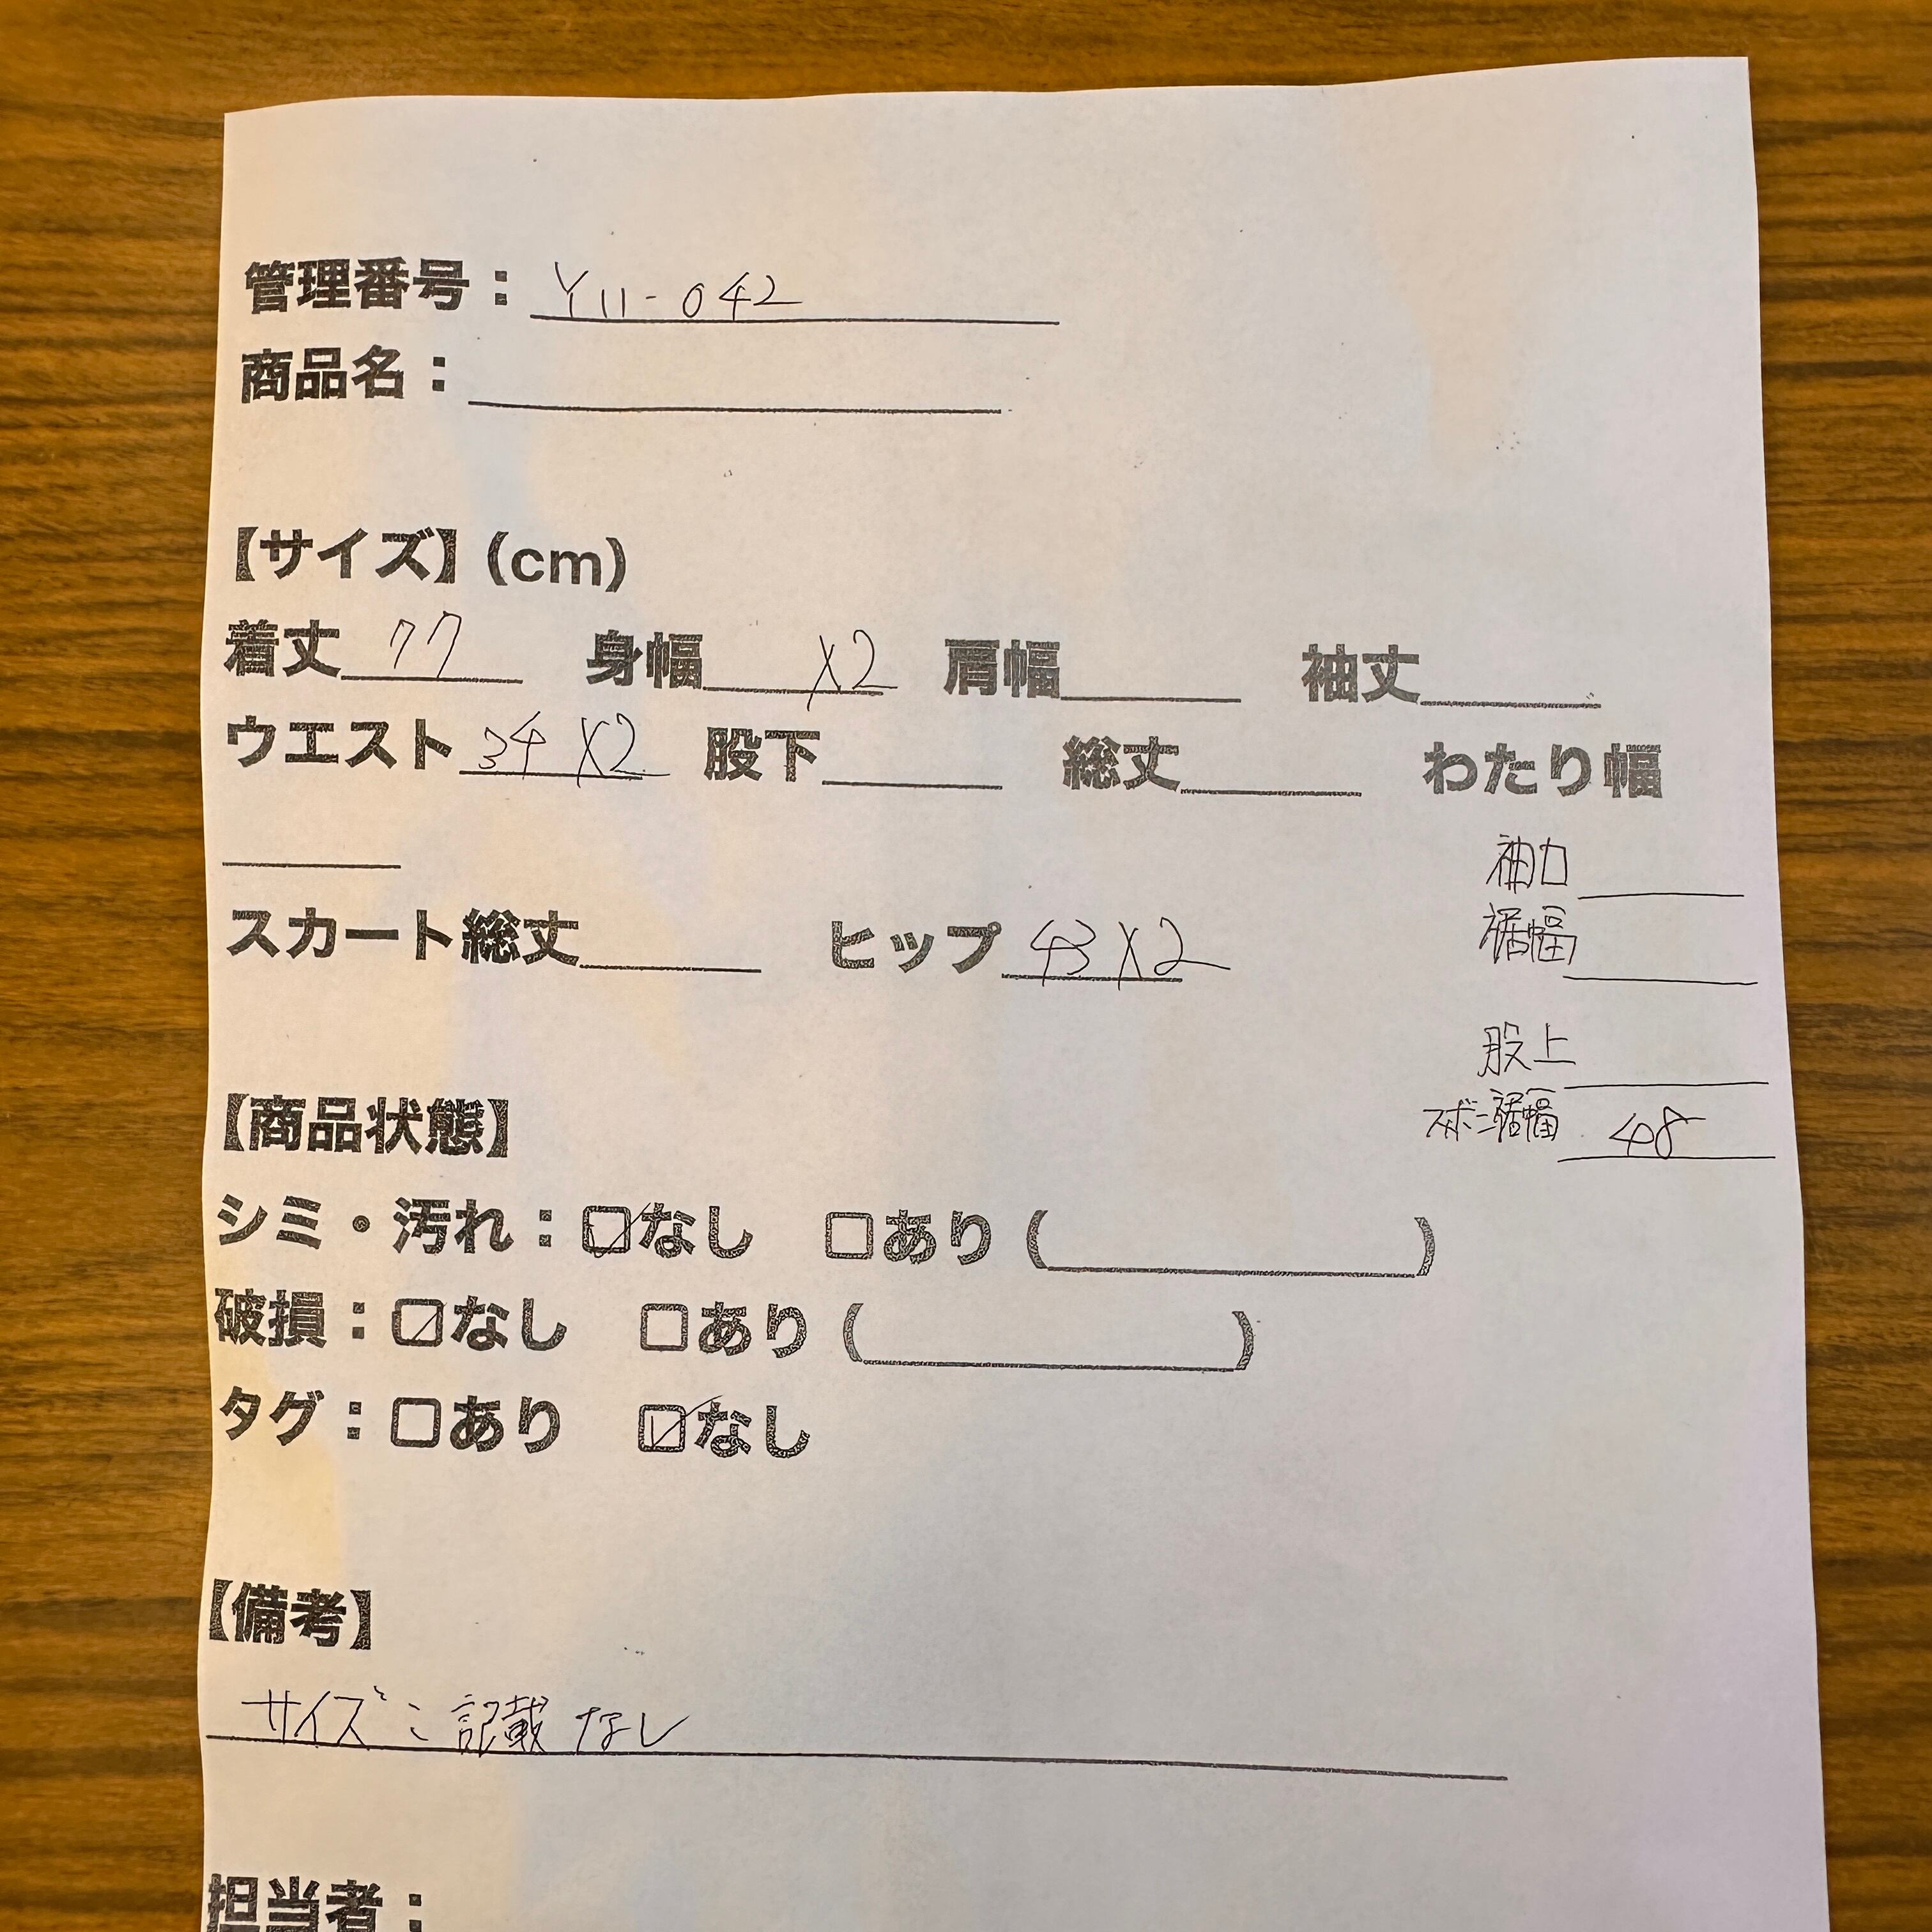 管理番号：Y11-042
商品名：
【サイズ】(cm)
着丈 77 身幅 X2 肩幅 袖丈
ウエスト 34 X2 股下 総丈 わたり幅
袖口
裾幅
スカート総丈 ヒップ 43 X2
股上
ズボン裾幅 48
【商品状態】
シミ・汚れ：☑なし □あり（ ）
破損：☑なし □あり（ ）
タグ：□あり ☑なし
【備考】
サイズ：記載なし
担当者：